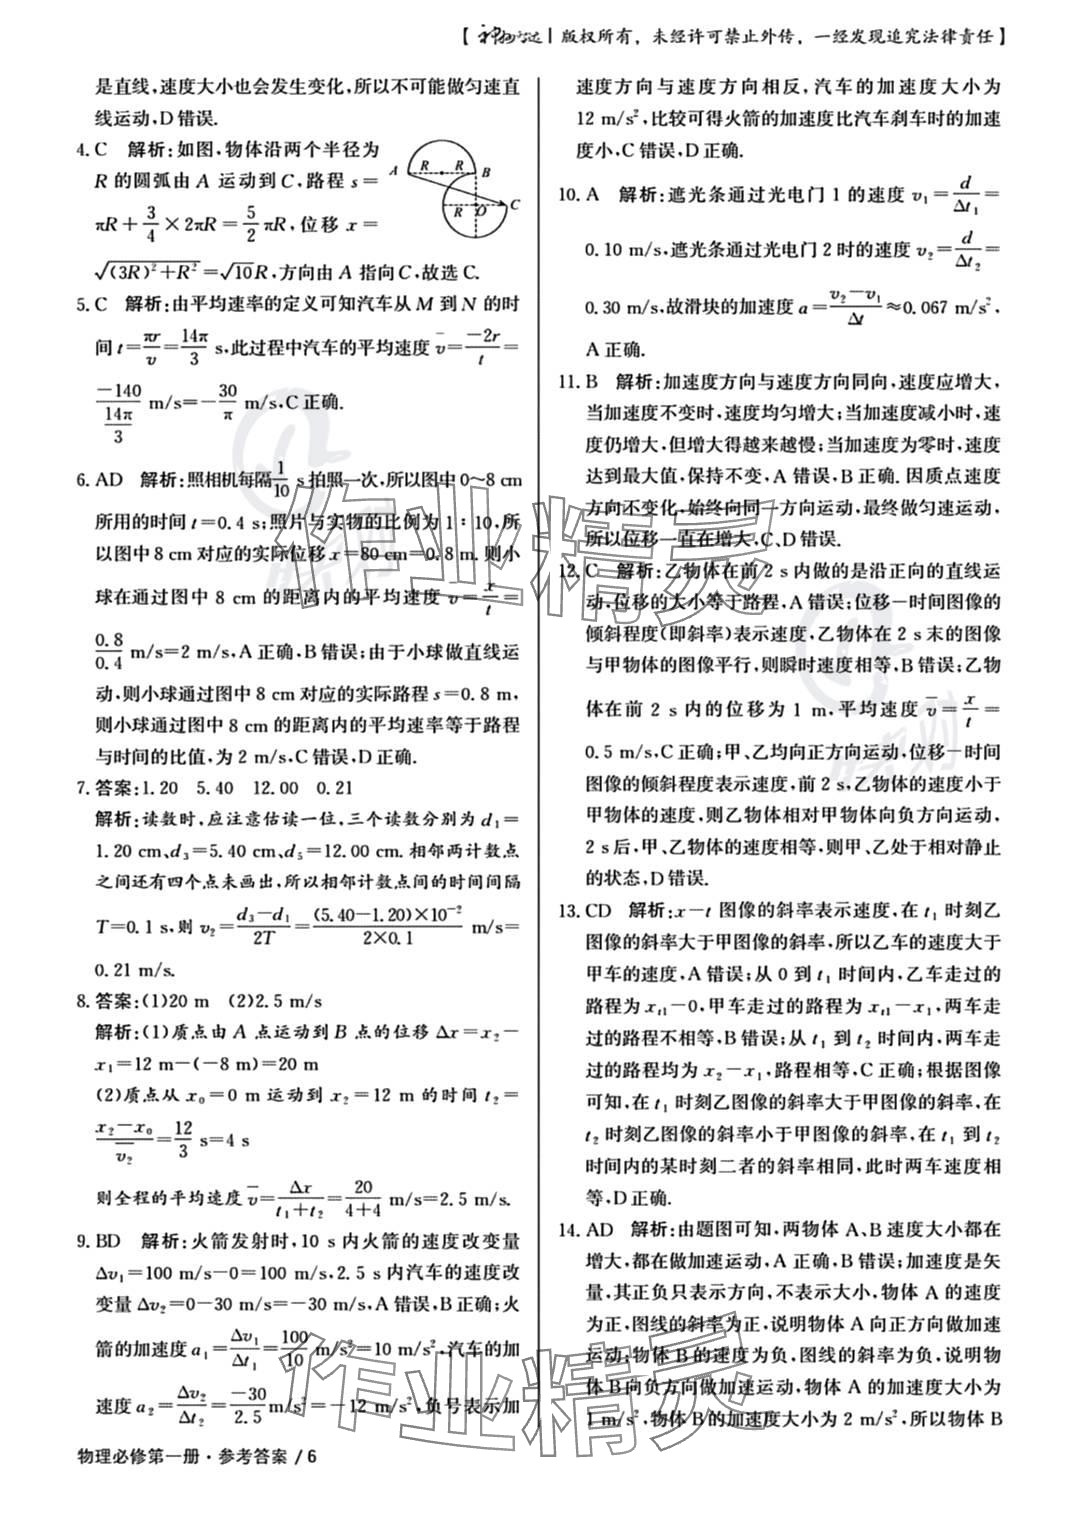 【神州文达丨版权所有，未经许可禁止外传，一经发现追究法律责任】
是直线,速度大小也会发生变化,所以不可能做匀速直
线运动,D错误.
4. C 解析:如图,物体沿两个半径为
R的圆弧由A运动到C,路程s=
πR+3/4×2πR=5/2πR,位移x=
√((3R)²+R²)=√10R,方向由A指向C,故选C.
A R R B
R O C
5. C 解析:由平均速率的定义可知汽车从M到N的时
间t=πr/v=14π/3 s,此过程中汽车的平均速度v̄=-2r/t=
-140/(14π/3) m/s=-30/π m/s,C正确.
6. AD 解析:照相机每隔1/10 s拍照一次,所以图中0~8 cm
所用的时间t=0.4 s;照片与实物的比例为1:10,所
以图中8 cm对应的实际位移x=80 cm=0.8 m.则小
球在通过图中8 cm的距离内的平均速度v̄=x/t=
0.8/0.4 m/s=2 m/s,A正确,B错误;由于小球做直线运
动,则小球通过图中8 cm对应的实际路程s=0.8 m,
则小球通过图中8 cm的距离内的平均速率等于路程
与时间的比值,为2 m/s,C错误,D正确.
7. 答案:1.20 5.40 12.00 0.21
解析:读数时,应注意估读一位,三个读数分别为d₁=
1.20 cm、d₃=5.40 cm、d₅=12.00 cm.相邻两计数点
之间还有四个点未画出,所以相邻计数点间的时间间隔
T=0.1 s,则v₂=(d₃-d₁)/2T=(5.40-1.20)×10⁻²/(2×0.1) m/s=
0.21 m/s.
8. 答案:(1)20 m (2)2.5 m/s
解析:(1)质点由A点运动到B点的位移Δx=x₂-
x₁=12 m-(-8 m)=20 m
(2)质点从x₀=0 m运动到x₂=12 m的时间t₂=
(x₂-x₀)/v̄₂=12/3 s=4 s
则全程的平均速度v̄=Δx/(t₁+t₂)=20/(4+4) m/s=2.5 m/s.
9. BD 解析:火箭发射时,10 s内火箭的速度改变量
Δv₁=100 m/s-0=100 m/s,2.5 s内汽车的速度改
变量Δv₂=0-30 m/s=-30 m/s,A错误,B正确;火
箭的加速度a₁=Δv₁/Δt₁=100/10 m/s²=10 m/s²,汽车的加
速度a₂=Δv₂/Δt₂=-30/2.5 m/s²=-12 m/s²,负号表示加
速度方向与速度方向相反,汽车的加速度大小为
12 m/s²,比较可得火箭的加速度比汽车刹车时的加速
度小,C错误,D正确.
10. A 解析:遮光条通过光电门1的速度v₁=d/Δt₁=
0.10 m/s,遮光条通过光电门2时的速度v₂=d/Δt₂=
0.30 m/s,故滑块的加速度a=(v₂-v₁)/Δt≈0.067 m/s²,
A正确.
11. B 解析:加速度方向与速度方向同向,速度应增大,
当加速度不变时,速度均匀增大;当加速度减小时,速
度仍增大,但增大得越来越慢;当加速度为零时,速度
达到最大值,保持不变,A错误,B正确.因质点速度
方向不变化,始终向同一方向运动,最终做匀速运动,
所以位移一直在增大,C、D错误.
12. C 解析:乙物体在前2 s内做的是沿正向的直线运
动,位移的大小等于路程,A错误;位移-时间图像的
倾斜程度(即斜率)表示速度,乙物体在2 s末的图像
与甲物体的图像平行,则瞬时速度相等,B错误;乙物
体在前2 s内的位移为1 m,平均速度v̄=x/t=
0.5 m/s,C正确;甲、乙均向正方向运动,位移-时间
图像的倾斜程度表示速度,前2 s,乙物体的速度小于
甲物体的速度,则乙物体相对甲物体向负方向运动,
2 s后,甲、乙物体的速度相等,则甲、乙处于相对静止
的状态,D错误.
13. CD 解析:x-t图像的斜率表示速度,在t₁时刻乙
图像的斜率大于甲图像的斜率,所以乙车的速度大于
甲车的速度,A错误;从0到t₁时间内,乙车走过的
路程为xₜ₁-0,甲车走过的路程为xₜ₁-x₁,两车走
过的路程不相等,B错误;从t₁到t₂时间内,两车走
过的路程均为x₂-x₁,路程相等,C正确;根据图像
可知,在t₁时刻乙图像的斜率大于甲图像的斜率,在
t₂时刻乙图像的斜率小于甲图像的斜率,在t₁到t₂
时间内的某时刻二者的斜率相同,此时两车速度相
等,D正确.
14. AD 解析:由题图可知,两物体A、B速度大小都在
增大,都在做加速运动,A正确,B错误;加速度是矢
量,其正负只表示方向,不表示大小,物体A的速度
为正,图线的斜率为正,说明物体A向正方向做加速
运动;物体B的速度为负,图线的斜率为负,说明物
体B向负方向做加速运动,物体A的加速度大小为
1 m/s²,物体B的加速度大小为2 m/s²,所以物体B
物理必修第一册·参考答案 / 6
作业精灵
作业精灵